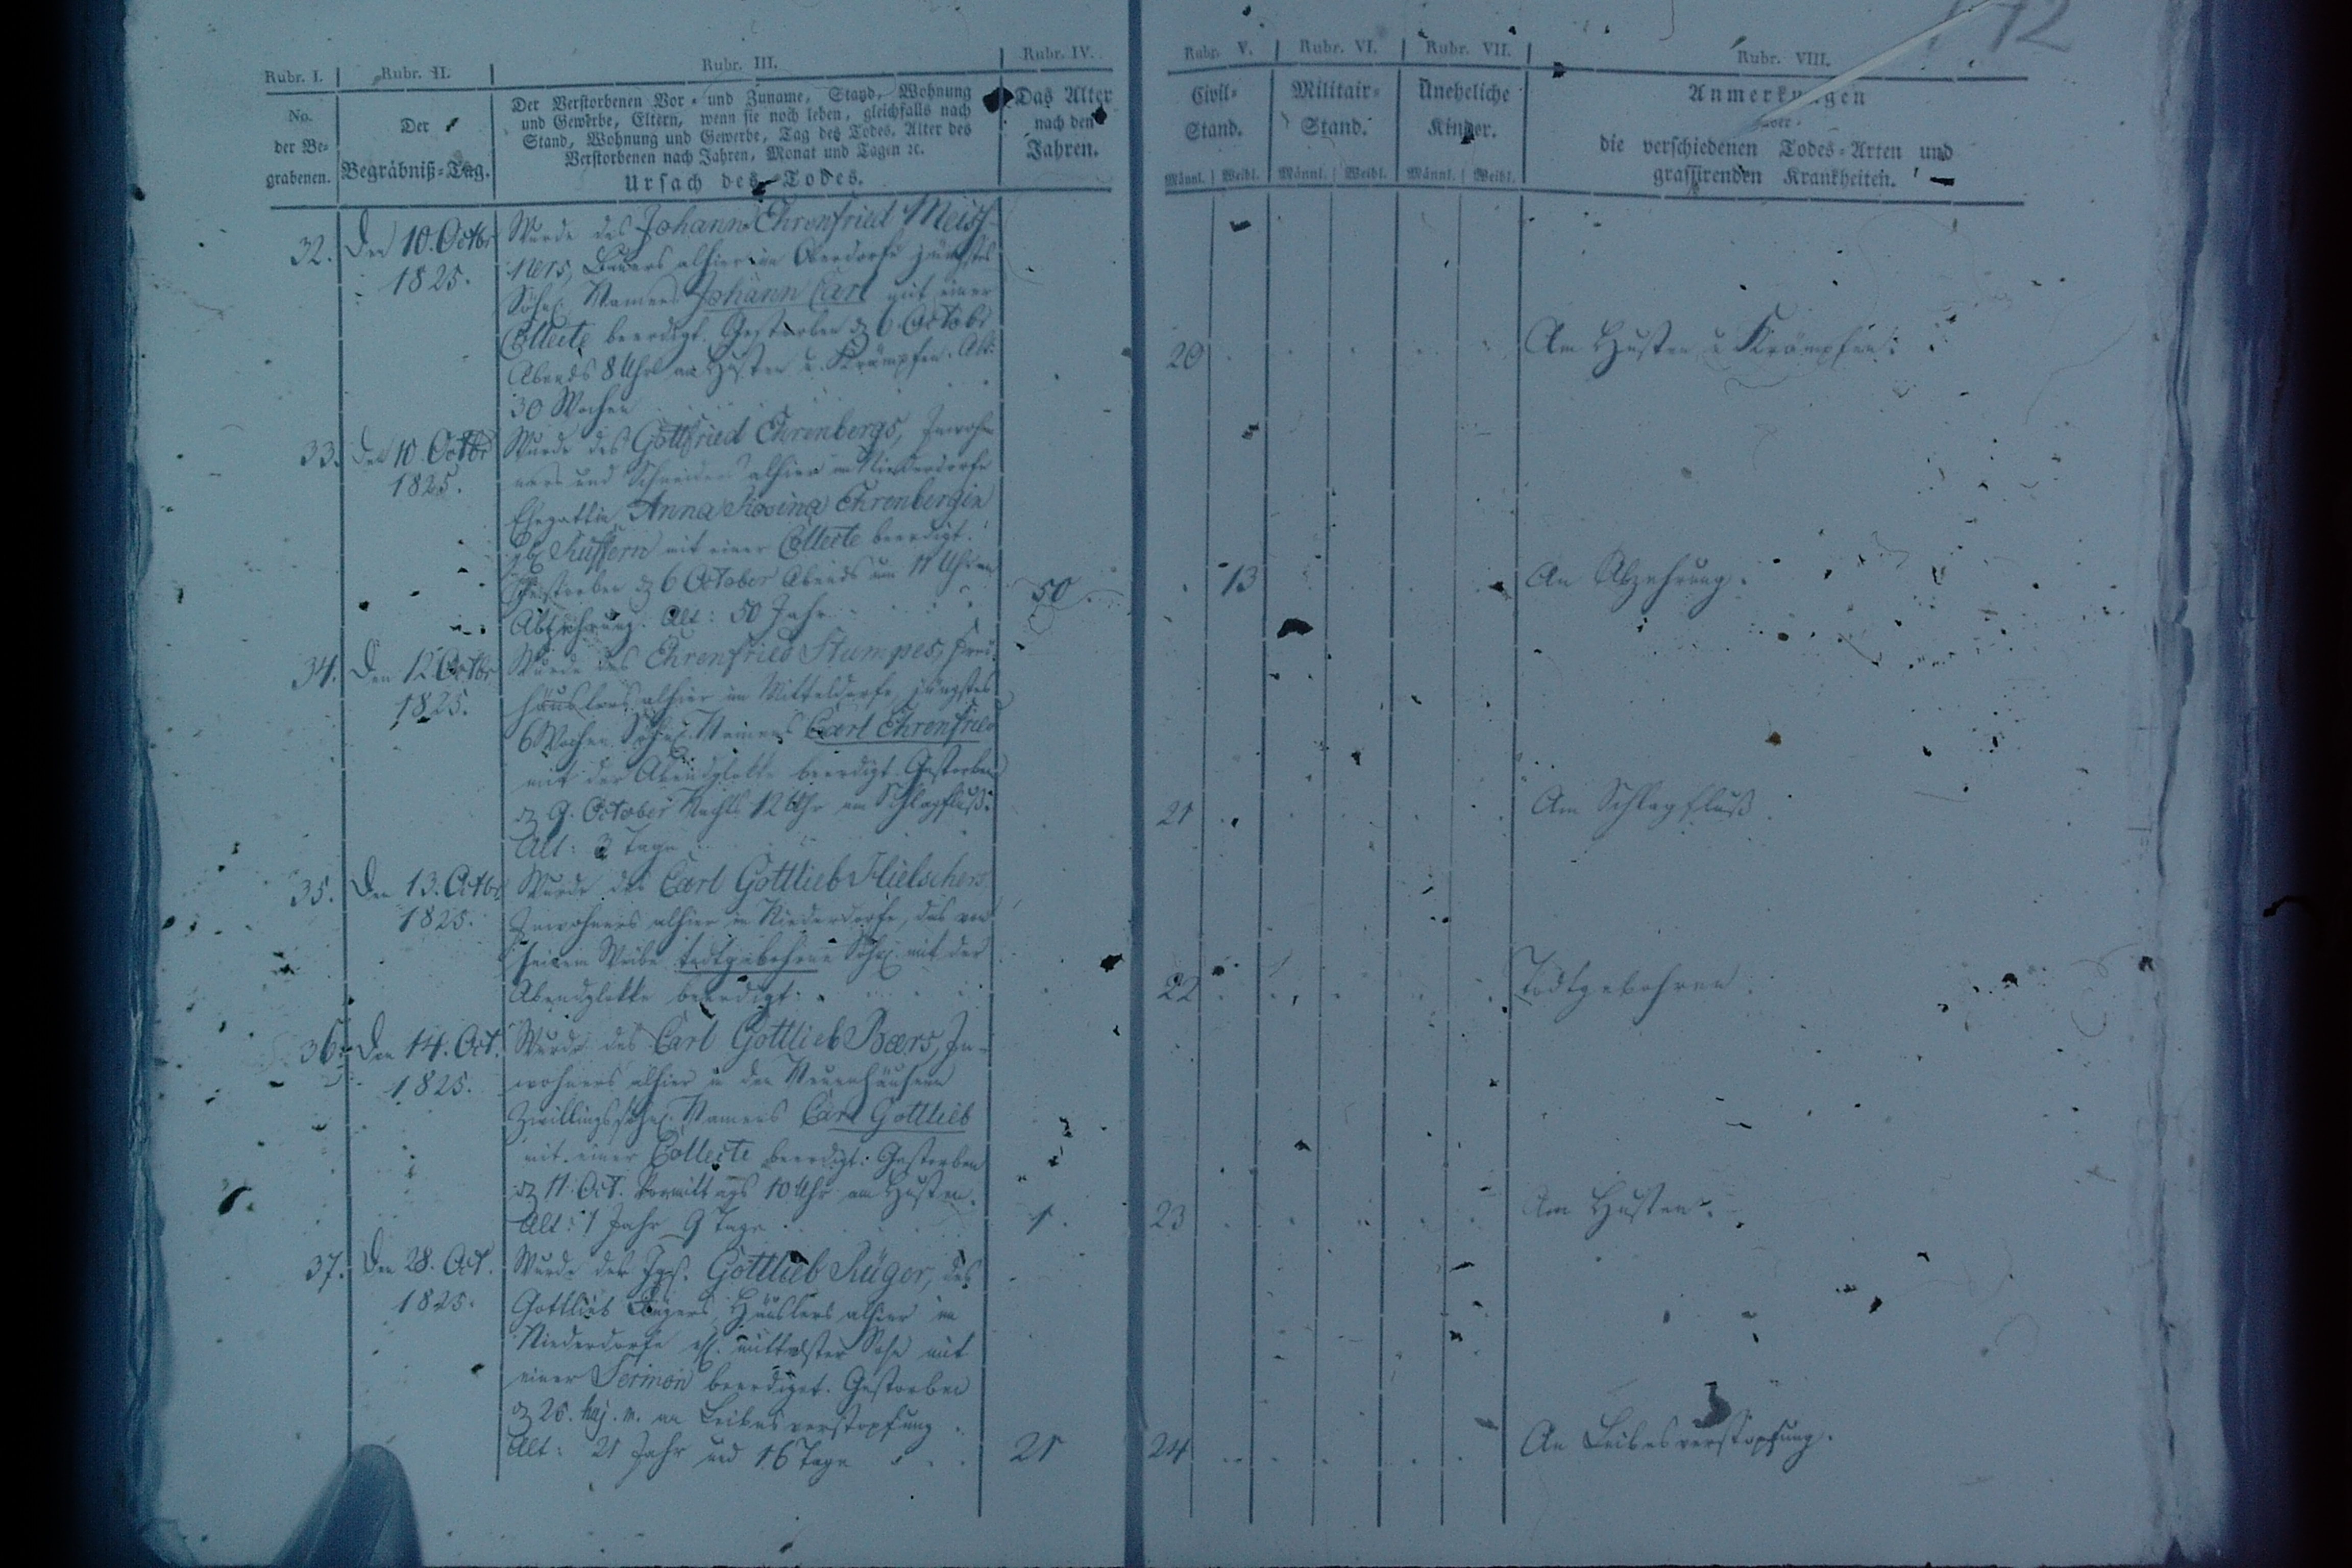 12
Rubr. I. Rubr. II. Rubr. III. Rubr. IV. Rubr. V. Rubr. VI. Rubr. VII. Rubr. VIII.
No.
der Be-
grabenen.
Der
Begräbniß-Tag.
Der Verstorbenen Vor- und Zuname, Stand, Wohnung
und Gewerbe, Eltern, wenn sie noch leben, gleichfalls nach
Stand, Wohnung und Gewerbe, Tag des Todes, Alter des
Verstorbenen nach Jahren, Monat und Tagen ꝛc.
Ursach des Todes.
Das Alter
nach den
Jahren.
Civil-
Stand.
Männl. Weibl.
Militair-
Stand.
Männl. Weibl.
Uneheliche
Kinder.
Männl. Weibl.
Anmerkungen
über
die verschiedenen Todes-Arten und
grassirenden Krankheiten.
32. Den 10. Octbr
1825.
Wurde des Johann Ehrenfried Meiss-
ners, Bauers alhier im Oberdorfe jüngstes
Söhnl. Namens Johann Carl mit einer
Collecte beerdigt. Gestorben d 6. Octobr
Abends 8 Uhr am Husten u. Krämpfen. Alt:
30 Wochen
20
Am Husten u Krämpfen.
33. Den 10. Octbr
1825.
Wurde des Gottfried Ehrenbergs, Inwoh-
ners und Schneiders alhier im Niederdorfe
Ehegattin Anna Rosina Ehrenbergin
geb. Ruffern mit einer Collecte beerdigt.
Gestorben d 6 October Abends um 11 Uhr an
Abzehrung. Alt: 50 Jahr
50
13
An Abzehrung.
34. Den 12. Octbr
1825.
Wurde des Ehrenfried Stumpes, Frei-
häuslers alhier im Mitteldorfe, jüngstes
6 Wochen Söhnl. Namens Carl Ehrenfried
mit der Abendglokke beerdigt. Gestorben
d 9. October Nachts 12 Uhr am Schlagfluß.
Alt: 3 Tage
21
Am Schlagfluß.
35. Den 13. Octbr
1825.
Wurde des Carl Gottlieb Hielschers
Inwohners alhier im Niederdorfe, das von
seinem Weibe todtgebohrne Söhnl. mit der
Abendglokke beerdigt.
22
Todtgebohren.
36. Den 14. Oct.
1825.
Wurde des Carl Gottlieb Baers, In-
wohners alhier in den Neuenhäusern
Zwillingssöhnl. Namens Carl Gottlieb
mit einer Collecte beerdigt: Gestorben
d 11. Oct. Vormittags 10 Uhr am Husten.
Alt: 1 Jahr 9 Tage
1.
23
Am Husten.
37. Den 28. Oct.
1825.
Wurde der Jgs. Gottlieb Rüger, des
Gottlieb Rügers Häuslers alhier im
Niederdorfe ehl. mittelster Sohn mit
einer Sermon beerdiget. Gestorben
d 26. huj. m. an Leibesverstopfung.
Alt: 21 Jahr und 16 Tage
21
24
An Leibesverstopfung.